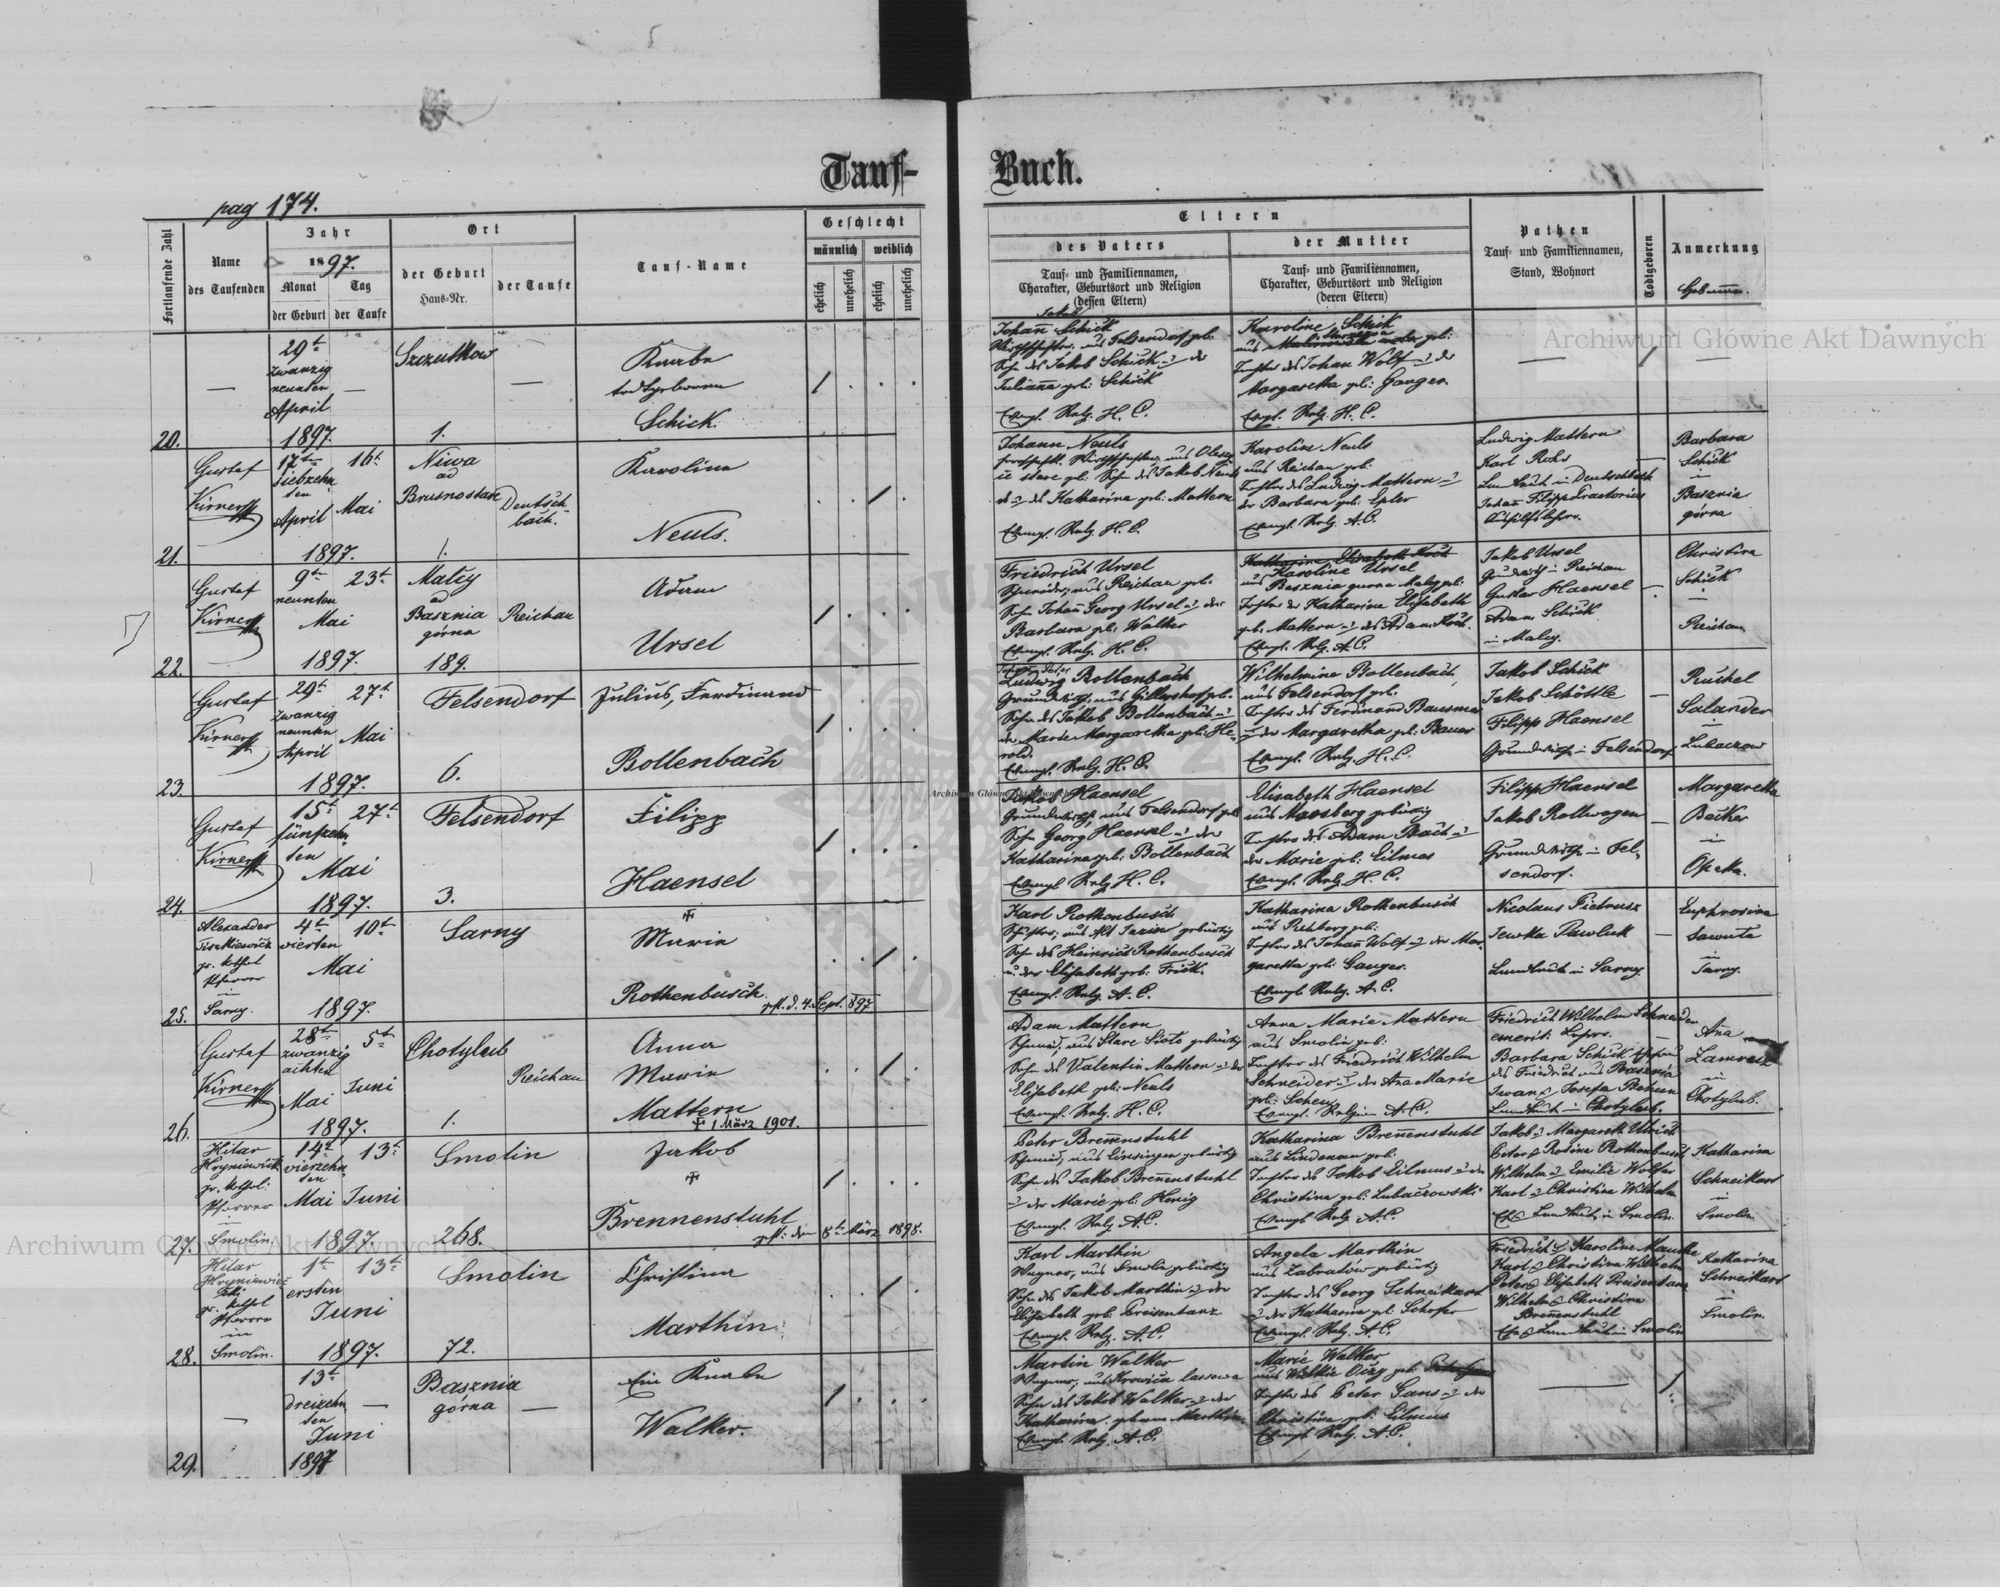 Tauf-
Buch.
pag 174.
Fortlaufende Zahl
Name
des Taufenden
Jahr
1897.
Monat
Tag
der Geburt
der Taufe
Ort
der Geburt
Haus-Nr.
der Taufe
Tauf-Name
Geschlecht
männlich
weiblich
ehelich
unehelich
ehelich
unehelich
Eltern
des Vaters
Tauf- und Familiennamen,
Charakter, Geburtsort und Religion
(dessen Eltern)
der Mutter
Tauf- und Familiennamen,
Charakter, Geburtsort und Religion
(deren Eltern)
Pathen
Tauf- und Familiennamen,
Stand, Wohnort
Todtgeboren
Anmerkung
20.
29t
zwanzig
neunten
April
1897.
Szczutkow
1.
Knabe
todtgeboren
Schick.
Johan Schick
Sohn des Jakob Schick u der
Julianna geb: Schick
Evangl. Relg. H. C.
Karoline Schick
Tochter des Johan Wolf u der
Margaretha geb: Gauger.
Evgl. Relg. H. C.
21.
Gustaf
Kirner
17ten
siebzehn
ten
April
1897.
16t
Mai
Niwa
ad
Brusnostare
1.
Deutsch-
bach.
Karolina
Neuls.
Johann Neuls
Evangl. Relg. H. C.
Karoline Neuls
aus Reichau geb:
Tochter des Ludwig Mattern u
der Barbara geb: Epler
Evangl. Relg. A. C.
Ludwig Mattern
Karl Rohs
Landleute in Deutschbach
Barbara
Schick
in
Basznia
górna
22.
Gustaf
Kirner
9ten
neunten
Mai
1897.
23t
Malcy
ad
Basznia
górna
189.
Reichau
Adam
Ursel
Friedrich Ursel
Schneider, aus Reichau geb.
Sohn Johan Georg Ursel u der
Barbara geb: Walker
Evangl. Relg. H. C.
Katharina Elisabeth Koch
Karoline Ursel
Tochter der Katharina Elisabeth
geb. Mattern u des Adam Koch.
Evangl. Relg. A. C.
Jakob Ursel
Grundwirth in Reichau
Gustav Haensel
Adam Schick
in Malcy.
Christina
Schick
in
Reichau
23.
Gustaf
Kirner
29t
zwanzig
neunten
April
1897.
27t
Mai
Felsendorf
6.
Julius, Ferdinand
Bollenbach
Ludwig Bollenbach
Sohn des Jakob Bollenbach u
der Marie Margaretha geb: He-
rold.
Evangl. Relg. H. C.
Wilhelmine Bollenbach
aus Felsendorf geb.
Tochter des Ferdinand Bausmer
u der Margaretha geb: Bauer
Evangl. Relg. H. C.
Jakob Schick
Jakob Schöttle
Filipp Haensel
Grundwirthe in Felsendorf
Ruchel
Salander
in
Lubaczow
24.
Gustaf
Kirner
15t
fünfzehn
ten
Mai
1897.
27t
Felsendorf
3.
Filipp
Haensel
Jakob Haensel
Grundwirth, aus Felsendorf geb
Sohn Georg Haensel u der
Katharina geb: Bollenbach
Evangl Relg. H. C.
Elisabeth Haensel
aus Mossberg gebürtig
Tochter des Adam Bach u
der Marie geb: Eilmes
Evangl. Relg. H. C.
Filipp Haensel
Jakob Rollwagen
Grundwirthe in Fel-
sendorf.
Margaretha
Becker
in
Opaka.
25.
Alexander
Tiszkiewicz
gr. kathol
Pfarrer
in
Sarny.
4t
vierten
Mai
1897.
10t
Sarny
Maria
Rothenbusch.
gest. d. 4. Sept. 897
Karl Rothenbusch
Sohn des Heinrich Rothenbusch
u. der Elisabeth geb: Frick.
Evangl. Relg. A. C.
Katharina Rothenbusch
aus Rehberg geb:
Tochter des Johan Wolf u der Mar-
garetha geb: Gauger.
Evangl Relg. A. C.
Nicolaus Pietrusz
Jewka Pawluk
Landleute in Sarny.
Euphrosina
Sawuta
in
Sarny.
26.
Gustaf
Kirner
28t
zwanzig
achten
Mai
1897.
5t
Juni
Chotylub
1.
Reichau
Anna
Maria
Mattern
† 1 März 1901.
Adam Mattern
Schmied, aus Stare Sioło gebürtig
Sohn des Valentin Mattern u der
Elisabeth geb: Neuls
Evangl. Relg. H. C.
Anna Marie Mattern
aus Smolin geb:
Tochter des Friedrich Wilhelm
Schneider u der Ana Marie
geb: Scheu
Evangl. Relgion A. C.
Friedrich Wilhelm Schneider
emerit. Lehrer.
Barbara Schick Ehefrau
des Friedrich aus Basznia
Landleute in Chotylub.
Ana
in
Chotylub.
27.
Hilar
Hryniewicki
gr. kathol.
Pfarrer
in
Smolin.
14t
vierzehn
ten
Mai
1897.
13t
Juni
Smolin
268.
Jakob
†
Brennenstuhl
gest: den 8ten März 1898.
Peter Brennenstuhl
Schmied, aus Einsingen gebürtig
Sohn des Jakob Brennenstuhl
u der Marie geb: Honig
Evangl. Relg. A. C.
Katharina Brennenstuhl
aus Lindenau geb:
Tochter des Jakob Eilmes u der
Christina geb: Lubaczowski
Evangl Relg. A. C.
Jakob u Margareth Ulrich
Peter u Rosina Rothenbusch
Wilhelm u Emilie Wolfer
Karl u Christina Wilhelm
Landleute in Smolin.
Katharina
Schneikart
in
Smolin.
28.
Hilar
Hryniewic
ki
gr. kathol
Pfarrer
in
Smolin.
1t
ersten
Juni
1897.
13t
Smolin
72.
Christina
Marthin.
Karl Marthin
Wagner, aus Smolin gebürtig
Sohn des Jakob Marthin u der
Elisabeth geb: Preisentanz
Evangl. Relg. A. C.
Angela Marthin
aus Zabratow gebürtig
Tochter des Georg Schneikart
u der Katharina geb: Schofer
Evangl. Relg. A. C.
Friedrich u Karoline Manske
Karl u Christina Wilhelm
Peter u Elisabeth Preisentanz
Wilhelm u Christina
Brennenstuhl
Landleute in Smolin
Katharina
Schneikart
in
Smolin.
29.
13t
dreizehn
ten
Juni
1897
Basznia
górna
Ein Knabe
Walker.
Martin Walker
Wagner, aus Krowica lasowa
Sohn des Jakob Walker u der
Katharina, geboren Marthin.
Evangl. Relg. A. C.
Marie Walker
Tochter des Peter Sans u der
Christina geb: Eilmes
Evangl. Relg. A. C.
Archiwum Główne Akt Dawnych
Archiwum Główne Akt Dawnych
Archiwum Główne Akt Dawnych